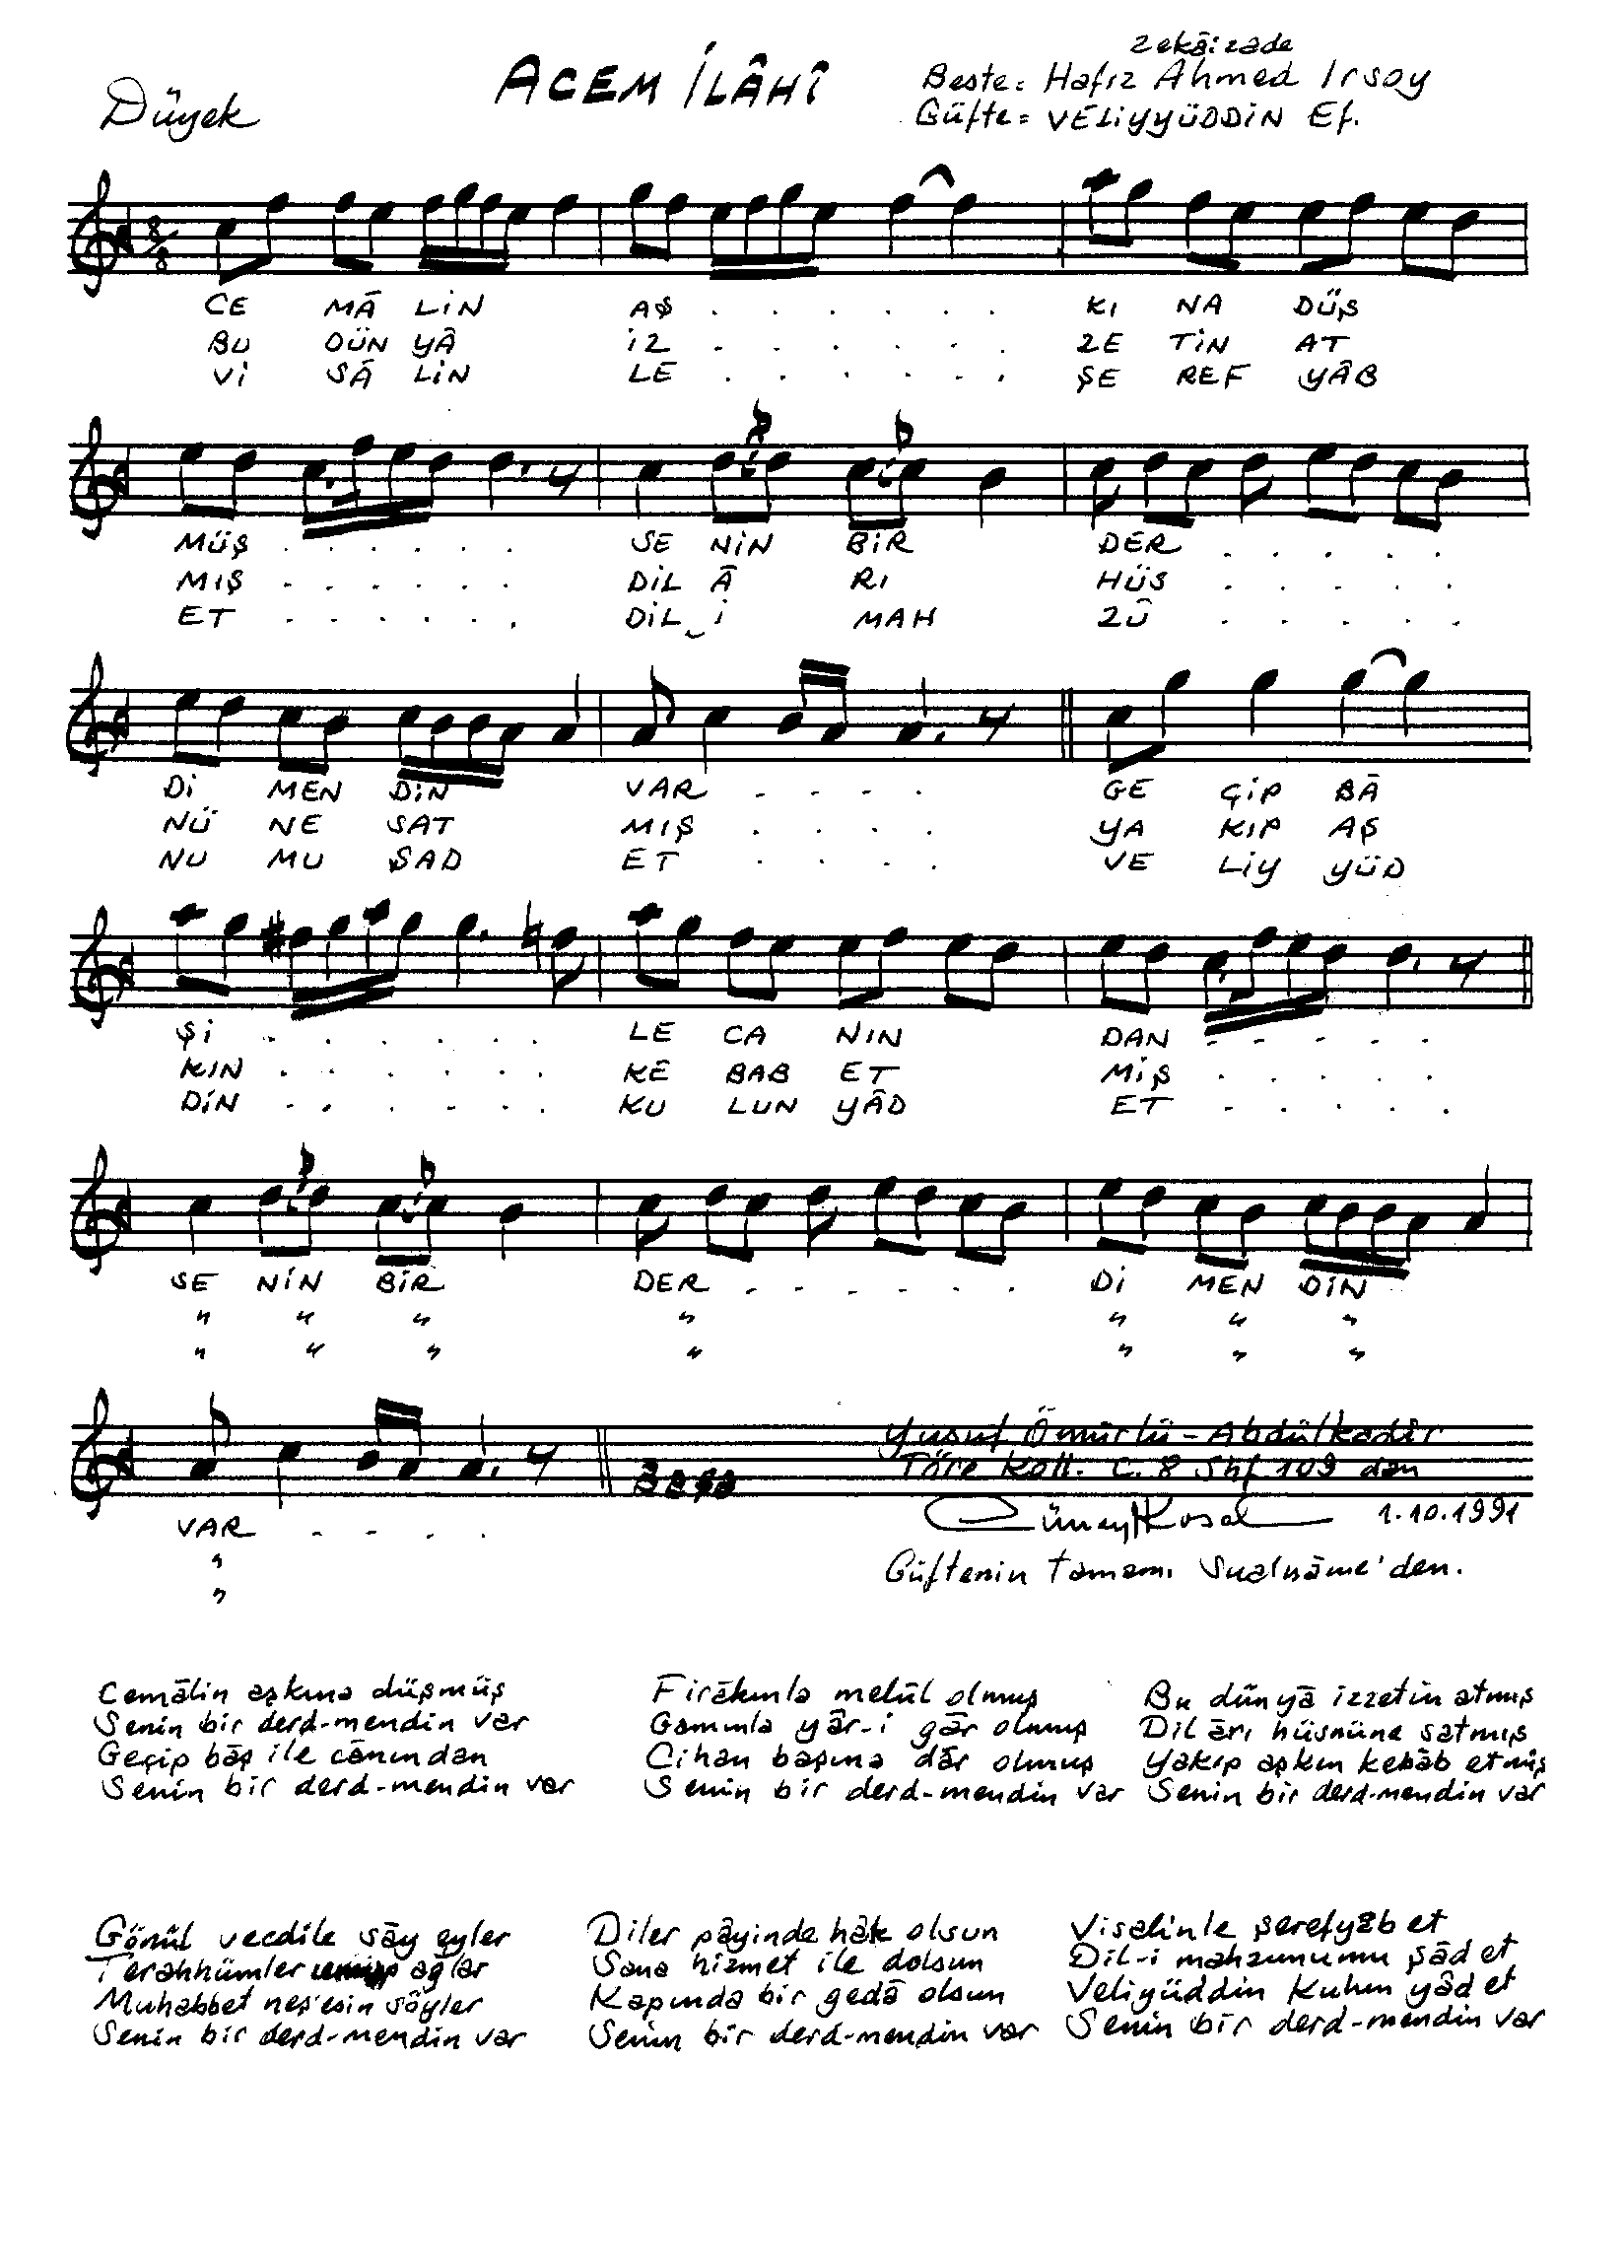 Düyek
ACEM İLÂHÎ
Zekâizade
Beste: Hafız Ahmed Irsoy
Güfte: VELİYYÜDDİN Ef.
8/8
CE MÂ LİN AŞ . . . . . . KI NA DÜŞ
BU DÜN YÂ İZ . . . . . . ZE TİN AT
Vİ SÂ LİN LE . . . . . . ŞE REF YÂB
MÜŞ . . . . . . SE NİN BİR DER . . . . .
MIŞ . . . . . . DİL Â RI HÜS . . . . .
ET . . . . . . DİL‿İ MAH ZÛ . . . . .
Dİ MEN DİN VAR . . . . GE ÇİP BÂ
NÜ NE SAT MIŞ . . . . YA KIP AŞ
NU MU ŞAD ET . . . . VE LİY YÜD
Şİ . . . . . . LE CA NIN DAN . . . . .
KIN . . . . . . KE BAB ET MİŞ . . . . .
DİN . . . . . . KU LUN YÂD ET . . . . .
SE NİN BİR DER . . . . . . Dİ MEN DİN
" " " " " " "
" " " " " " "
VAR . . . .
"
"
Yusuf Ömürlü - Abdülkadir
Töre Koll. C. 8 Shf 109 dan
Cüneyt Kosal 1.10.1991
Güftenin tamamı Sualnâme'den.
Cemâlin aşkına düşmüş
Senin bir derd-mendin var
Geçip bâş ile cânından
Senin bir derd-mendin var
Firâkınla melûl olmuş
Gamınla yâr-i gâr olmuş
Cihan başına dâr olmuş
Senin bir derd-mendin var
Bu dünyâ izzetin atmış
Dil ârı hüsnüne satmış
Yakıp aşkın kebâb etmiş
Senin bir derd-mendin var
Gönül vecdile sây eyler
Terahhümler ağlar
Muhabbet neş'esin söyler
Senin bir derd-mendin var
Diler pâyinde hâk olsun
Sana hizmet ile dolsun
Kapında bir gedâ olsun
Senin bir derd-mendin var
Visalinle şerefyâb et
Dil-i mahzunumu şâd et
Veliyüddin Kulun yâd et
Senin bir derd-mendin var